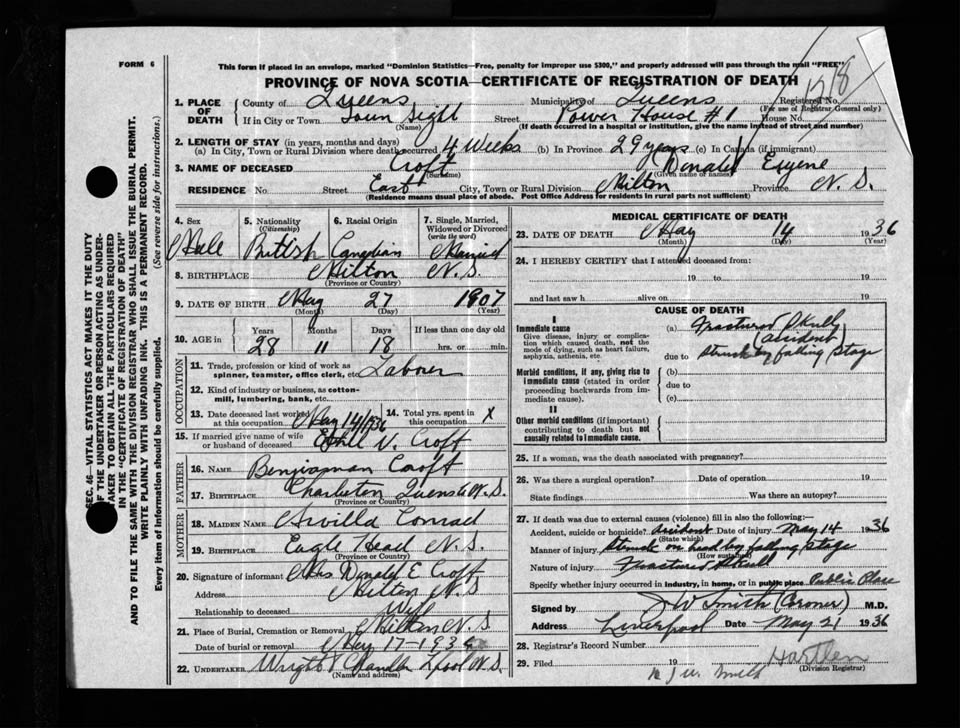 FORM 6
This form if placed in an envelope, marked "Dominion Statistics—Free, penalty for improper use $300," and properly addressed will pass through the mail "FREE"
PROVINCE OF NOVA SCOTIA—CERTIFICATE OF REGISTRATION OF DEATH
1. PLACE OF DEATH County of Queens Municipality of Queens Registered No.
(For use of Registrar General only)
If in City or Town Street Power House #1 House No.
(Name) (If death occurred in a hospital or institution, give the name instead of street and number)
2. LENGTH OF STAY (in years, months and days)
(a) In City, Town or Rural Division where death occurred 4 Weeks (b) In Province 29 years (c) In Canada (if immigrant)
3. NAME OF DECEASED Croft Donald Eugene
(Surname) (Given name or names)
RESIDENCE No. Street East City, Town or Rural Division Milton Province N. S.
(Residence means usual place of abode. Post Office Address for residents in rural parts not sufficient)
SEC. 46—VITAL STATISTICS ACT MAKES IT THE DUTY
OF THE UNDERTAKER OR PERSON ACTING AS UNDER-
TAKER TO OBTAIN ALL THE PARTICULARS REQUIRED
IN THE "CERTIFICATE OF REGISTRATION OF DEATH"
AND TO FILE THE SAME WITH THE DIVISION REGISTRAR WHO SHALL ISSUE THE BURIAL PERMIT.
WRITE PLAINLY WITH UNFADING INK. THIS IS A PERMANENT RECORD.
Every item of Information should be carefully supplied. (See reverse side for instructions.)
4. Sex 5. Nationality (Citizenship) 6. Racial Origin 7. Single, Married, Widowed or Divorced (write the word)
Male British Canadian Married
8. BIRTHPLACE Milton N. S.
(Province or Country)
9. DATE OF BIRTH May 27 1907
(Month) (Day) (Year)
10. AGE in Years Months Days If less than one day old
28 11 18 hrs. or min.
OCCUPATION
11. Trade, profession or kind of work as spinner, teamster, office clerk, etc. Laborer
12. Kind of industry or business, as cotton-mill, lumbering, bank, etc.
13. Date deceased last worked at this occupation May 14/1936 14. Total yrs. spent in this occupation X
15. If married give name of wife or husband of deceased V. Croft
FATHER
16. NAME Croft
17. BIRTHPLACE Charleston Queens Co N.S.
(Province or Country)
MOTHER
18. MAIDEN NAME Arvilla Conrad
19. BIRTHPLACE Eagle Head N. S.
(Province or Country)
20. Signature of informant Mrs Donald E Croft
Address Milton N. S
Relationship to deceased Wife
21. Place of Burial, Cremation or Removal Milton N. S.
Date of burial or removal May 17-1936
22. UNDERTAKER Wright & Chandler Lpool N.S.
(Name and address)
MEDICAL CERTIFICATE OF DEATH
23. DATE OF DEATH May 14 1936
(Month) (Day) (Year)
24. I HEREBY CERTIFY that I attended deceased from:
19 to 19
and last saw h alive on 19
CAUSE OF DEATH
I
Immediate cause
Give disease, injury or complication which caused death, not the mode of dying, such as heart failure, asphyxia, asthenia, etc.
(a) Fractured Skull
(accident
due to struck by falling stage
Morbid conditions, if any, giving rise to immediate cause (stated in order proceeding backwards from immediate cause).
(b)
due to
(c)
II
Other morbid conditions (if important) contributing to death but not causally related to immediate cause.
25. If a woman, was the death associated with pregnancy?
26. Was there a surgical operation? Date of operation 19
State findings Was there an autopsy?
27. If death was due to external causes (violence) fill in also the following:—
Accident, suicide or homicide? Accident Date of injury May 14 1936
(State which)
Manner of injury Struck on head by falling stage
(How sustained)
Nature of injury Fractured Skull
Specify whether injury occurred in industry, in home, or in public place Public Place
Signed by J W Smith (Coroner) M.D.
Address Liverpool Date May 21 1936
28. Registrar's Record Number
29. Filed 19
(Division Registrar)